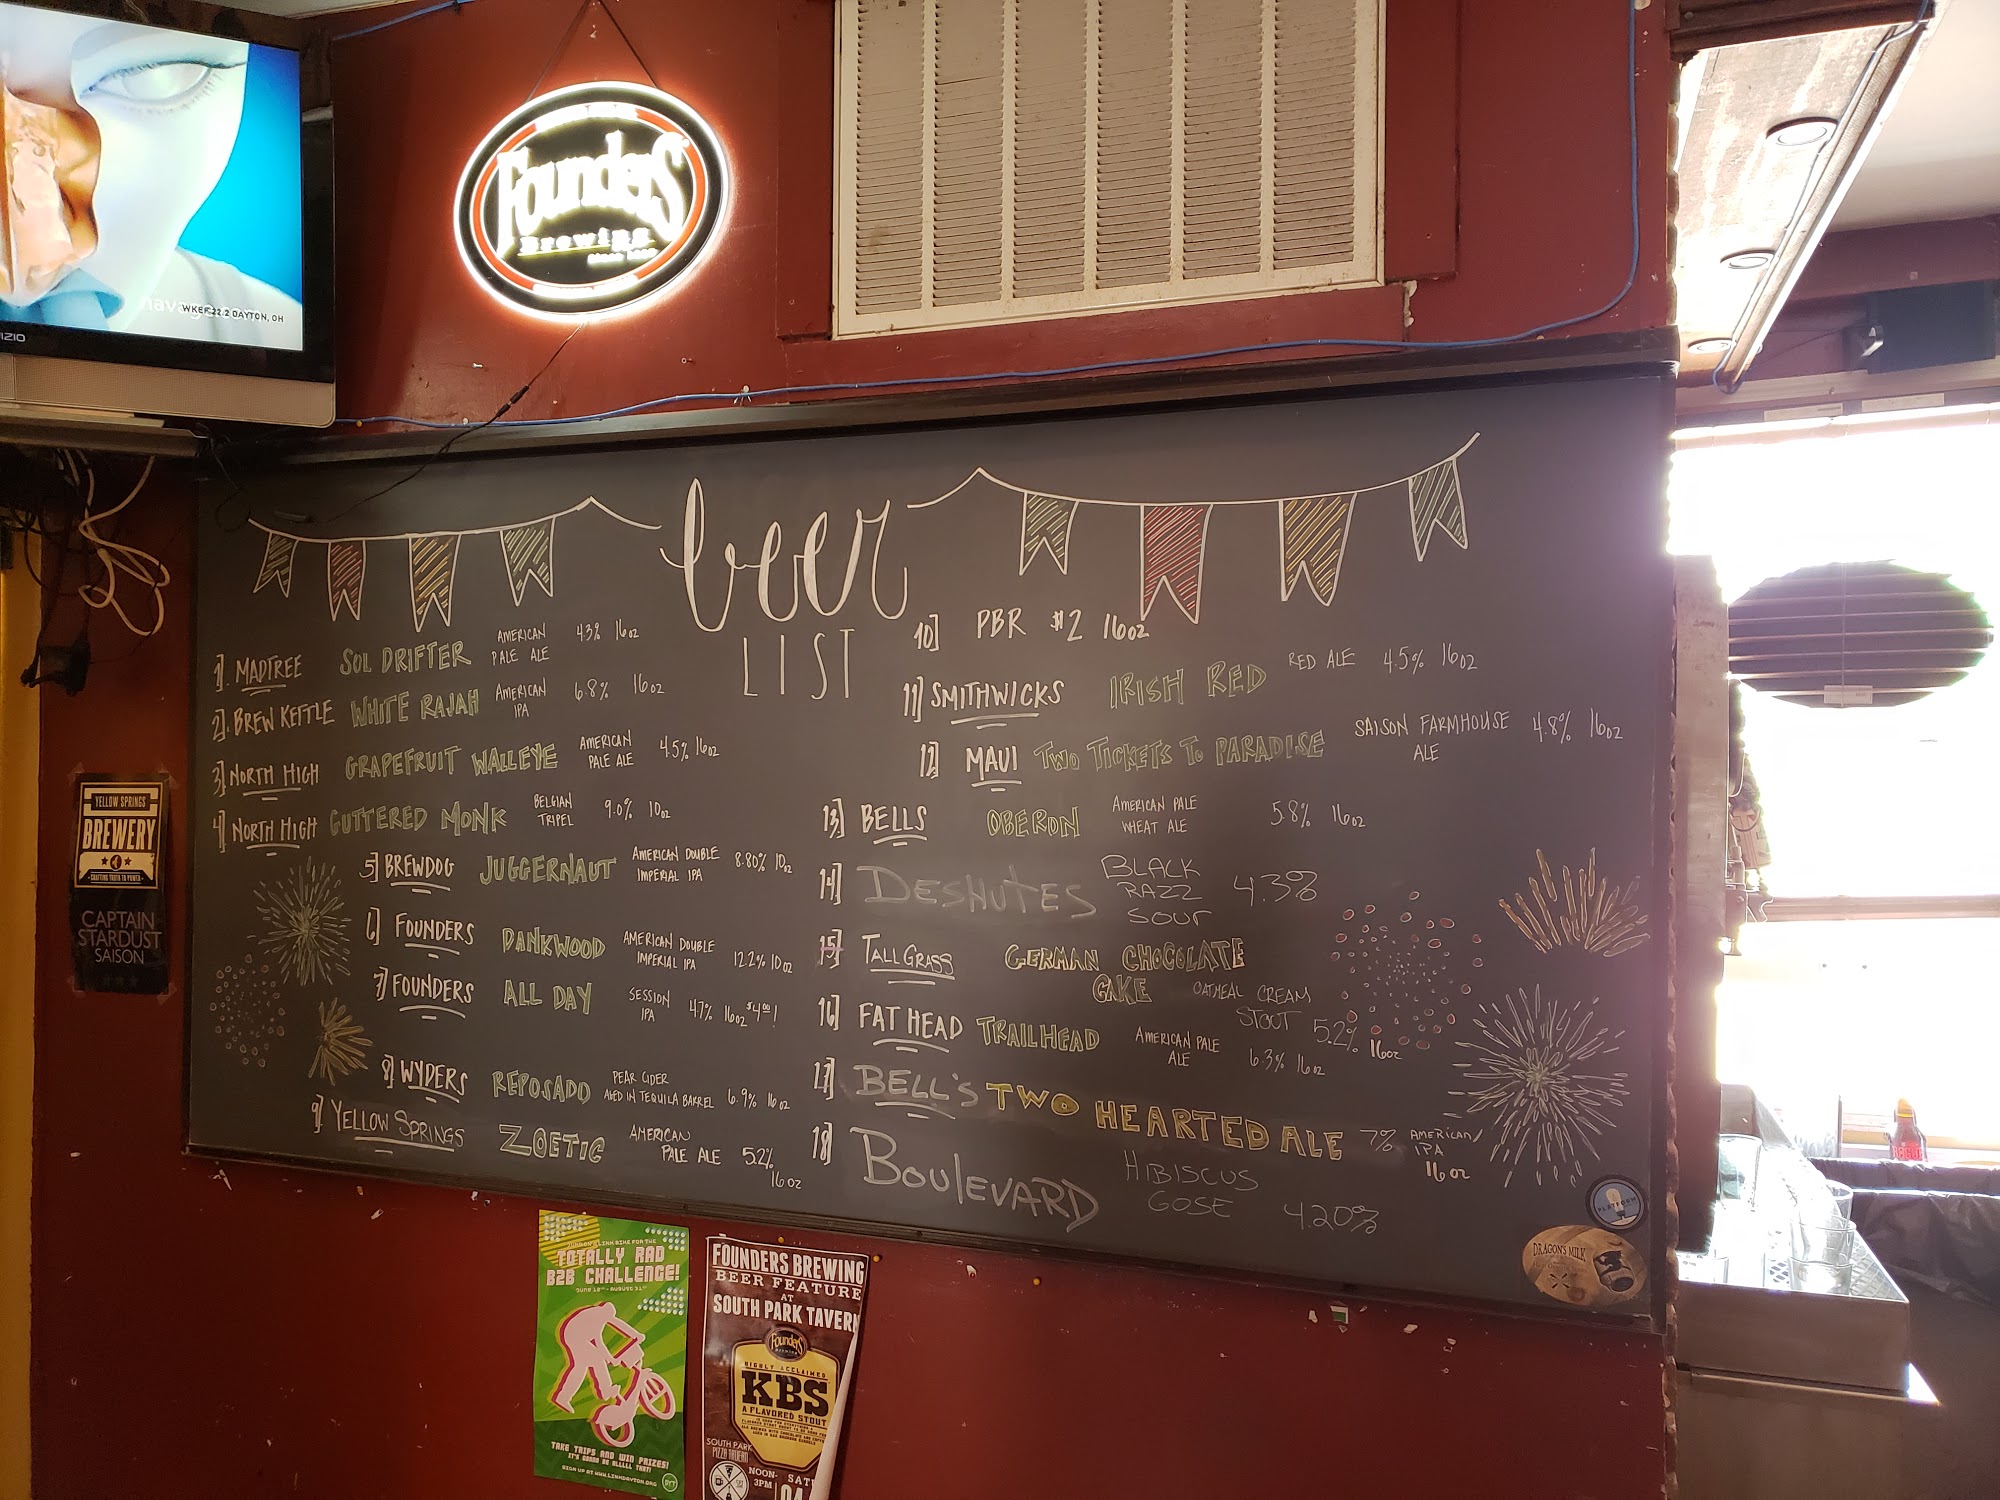 WKEF 22.2 DAYTON, OH
Founders
Brewing
beer
LIST
1]. MADTREE SOL DRIFTER AMERICAN PALE ALE 4.3% 16oz
2]. BREW KETTLE WHITE RAJAH AMERICAN IPA 6.8% 16oz
3] NORTH HIGH GRAPEFRUIT WALLEYE AMERICAN PALE ALE 4.5% 16oz
4] NORTH HIGH GUTTERED MONK BELGIAN TRIPEL 9.0% 10oz
5] BREWDOG JUGGERNAUT AMERICAN DOUBLE IMPERIAL IPA 8.80% 10oz
6] FOUNDERS DANKWOOD AMERICAN DOUBLE IMPERIAL IPA 12.2% 10oz
7] FOUNDERS ALL DAY SESSION IPA 4.7% 16oz $4.00!
8] WYDERS REPOSADO PEAR CIDER AGED IN TEQUILA BARREL 6.9% 16oz
9] YELLOW SPRINGS ZOETIC AMERICAN PALE ALE 5.2% 16oz
10] PBR $2 16oz
11] SMITHWICKS IRISH RED RED ALE 4.5% 16oz
12] MAUI TWO TICKETS TO PARADISE SAISON FARMHOUSE ALE 4.8% 16oz
13] BELLS OBERON AMERICAN PALE WHEAT ALE 5.8% 16oz
14] DESHUTES BLACK RAZZ SOUR 4.3%
15] TALLGRASS GERMAN CHOCOLATE CAKE OATMEAL CREAM STOUT 5.2% 16oz
16] FAT HEAD TRAILHEAD AMERICAN PALE ALE 6.3% 16oz
17] BELL'S TWO HEARTED ALE 7% AMERICAN/ IPA 16oz
18] BOULEVARD HIBISCUS GOSE 4.20%
PLATFORM
DRAGON'S MILK
YELLOW SPRINGS
BREWERY
CRAFTING TRUTH TO POWER
CAPTAIN
STARDUST
SAISON
TOTALLY RAD
B2B CHALLENGE!
JUNE 18TH - AUGUST 31ST
TAKE TRIPS AND WIN PRIZES!
IT'S GONNA BE ALLLLL THAT!
SIGN UP AT WWW.LINKDAYTON.ORG
FOUNDERS BREWING
BEER FEATURE
AT
SOUTH PARK TAVERN
Founders
Brewing
HIGHLY ACCLAIMED
KBS
A FLAVORED STOUT
SOUTH PARK
PIZZA TAVERN
NOON-
3PM